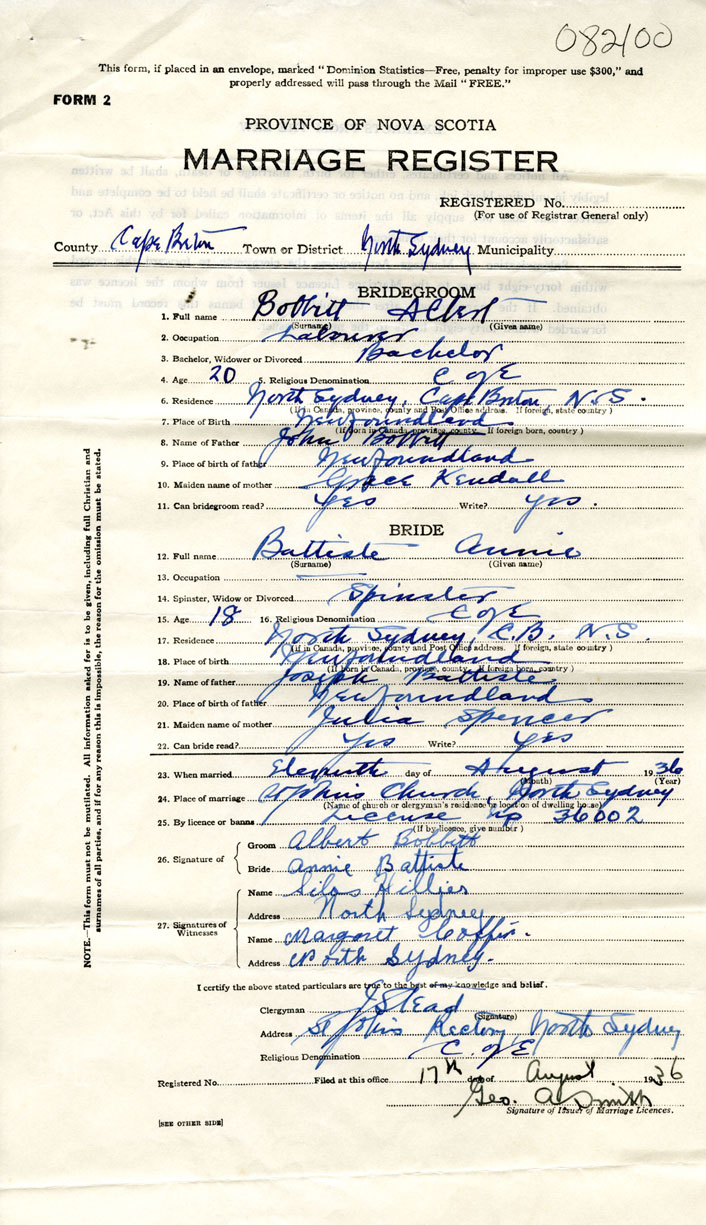 082100
This form, if placed in an envelope, marked "Dominion Statistics—Free, penalty for improper use $300," and
properly addressed will pass through the Mail "FREE."
FORM 2
PROVINCE OF NOVA SCOTIA
MARRIAGE REGISTER
REGISTERED No.
(For use of Registrar General only)
County Cape Breton Town or District North Sydney Municipality
BRIDEGROOM
1. Full name Bobbitt Albert
(Surname) (Given name)
2. Occupation Labourer
3. Bachelor, Widower or Divorced Bachelor
4. Age 20 5. Religious Denomination C of E
6. Residence North Sydney, Cape Breton, N.S.
(If in Canada, province, county and Post Office address. If foreign, state country)
7. Place of Birth Newfoundland
(If born in Canada, province, county. If foreign born, country)
8. Name of Father John Bobbitt
9. Place of birth of father Newfoundland
10. Maiden name of mother Grace Kendall
11. Can bridegroom read? Yes Write? Yes.
BRIDE
12. Full name Battiste Annie
(Surname) (Given name)
13. Occupation —
14. Spinster, Widow or Divorced Spinster
15. Age 18 16. Religious Denomination C of E
17. Residence North Sydney, C.B. N.S.
(If in Canada, province, county and Post Office address. If foreign, state country)
18. Place of birth Newfoundland
(If born in Canada, province, county. If foreign born, country)
19. Name of father Joseph Battiste.
20. Place of birth of father Newfoundland
21. Maiden name of mother Julia Spencer
22. Can bride read? Yes Write? Yes
23. When married Eleventh day of August 1936
(Month) (Year)
24. Place of marriage St Johns Church, North Sydney
(Name of church or clergyman's residence or location of dwelling house)
25. By licence or banns License No 36002
(If by licence, give number)
26. Signature of
Groom Albert Bobbitt
Bride Annie Battiste
27. Signatures of Witnesses
Name Silas Hillier
Address North Sydney
Name Margaret Coffin.
Address North Sydney.
I certify the above stated particulars are true to the best of my knowledge and belief.
Clergyman J Stead
(Signature)
Address St Johns Rectory North Sydney
Religious Denomination C. of E
Registered No. Filed at this office 17th day of August 1936
Geo. A Smith
Signature of Issuer of Marriage Licences.
[SEE OTHER SIDE]
NOTE.—This form must not be mutilated. All information asked for is to be given, including full Christian and
surnames of all parties, and if for any reason this is impossible, the reason for the omission must be stated.